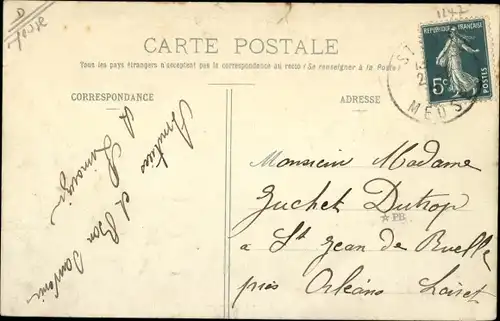 D
Meuse
1247
CARTE POSTALE
Tous les pays étrangers n'acceptent pas la correspondance au recto (Se renseigner à la Poste)
CORRESPONDANCE
ADRESSE
REPUBLIQUE FRANÇAISE
5c
POSTES
ST
MEUSE
Amitiés
&
et Bon
Monsieur Madame
Guchet Dutrop
PB
a St Jean de Ruelle
près Orléans Loiret